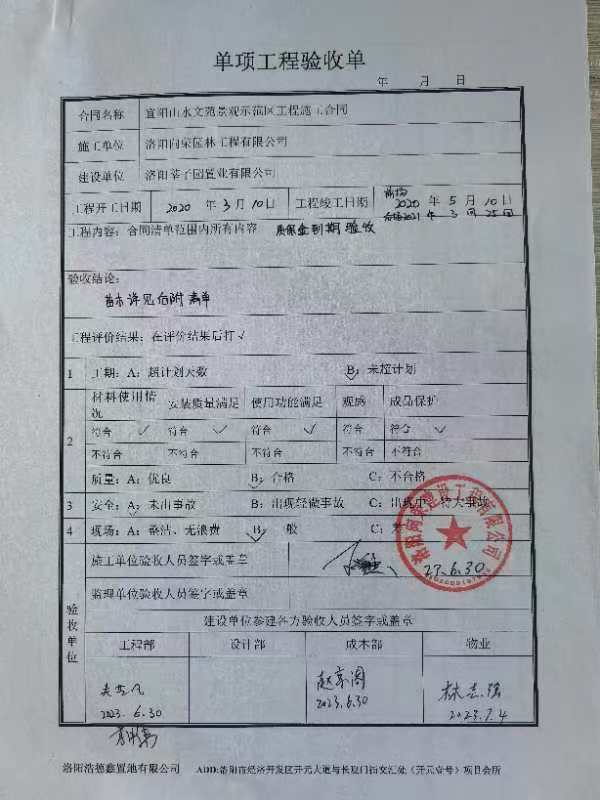 单项工程验收单
年 月 日
合同名称 宜阳山水文苑景观示范区工程施工合同
施工单位 洛阳向荣园林工程有限公司
建设单位 洛阳荃子园置业有限公司
工程开工日期 2020 年 3 月 10 日 工程竣工日期 2020 年 5 月 10 日
2021 年 3 月 25 日
工程内容：合同清单范围内所有内容 质保金到期验收
验收结论：
苗木详见后附表单
工程评价结果：在评价结果后打√
1 工期：A：超计划天数 B：未超计划 √
2 材料使用情况 安装质量满足 使用功能满足 观感 成品保护
符合 √ 符合 √ 符合 √ 符合 符合 √
不符合 不符合 不符合 不符合 不符合
质量：A：优良 B：合格 √ C：不合格
3 安全：A：未出事故 B：出现轻微事故 C：出现重、特大事故
4 现场：A：整洁、无浪费 B：一般 √ C：
验收单位
施工单位验收人员签字或盖章
23.6.30
监理单位验收人员签字或盖章
建设单位参建各方验收人员签字或盖章
工程部 设计部 成本部 物业
2023.6.30 2023.6.30
林志强
2023.7.4
洛阳浩德鑫置地有限公司 ADD:洛阳市经济开发区开元大道与长厦门街交汇处《开元壹号》项目会所